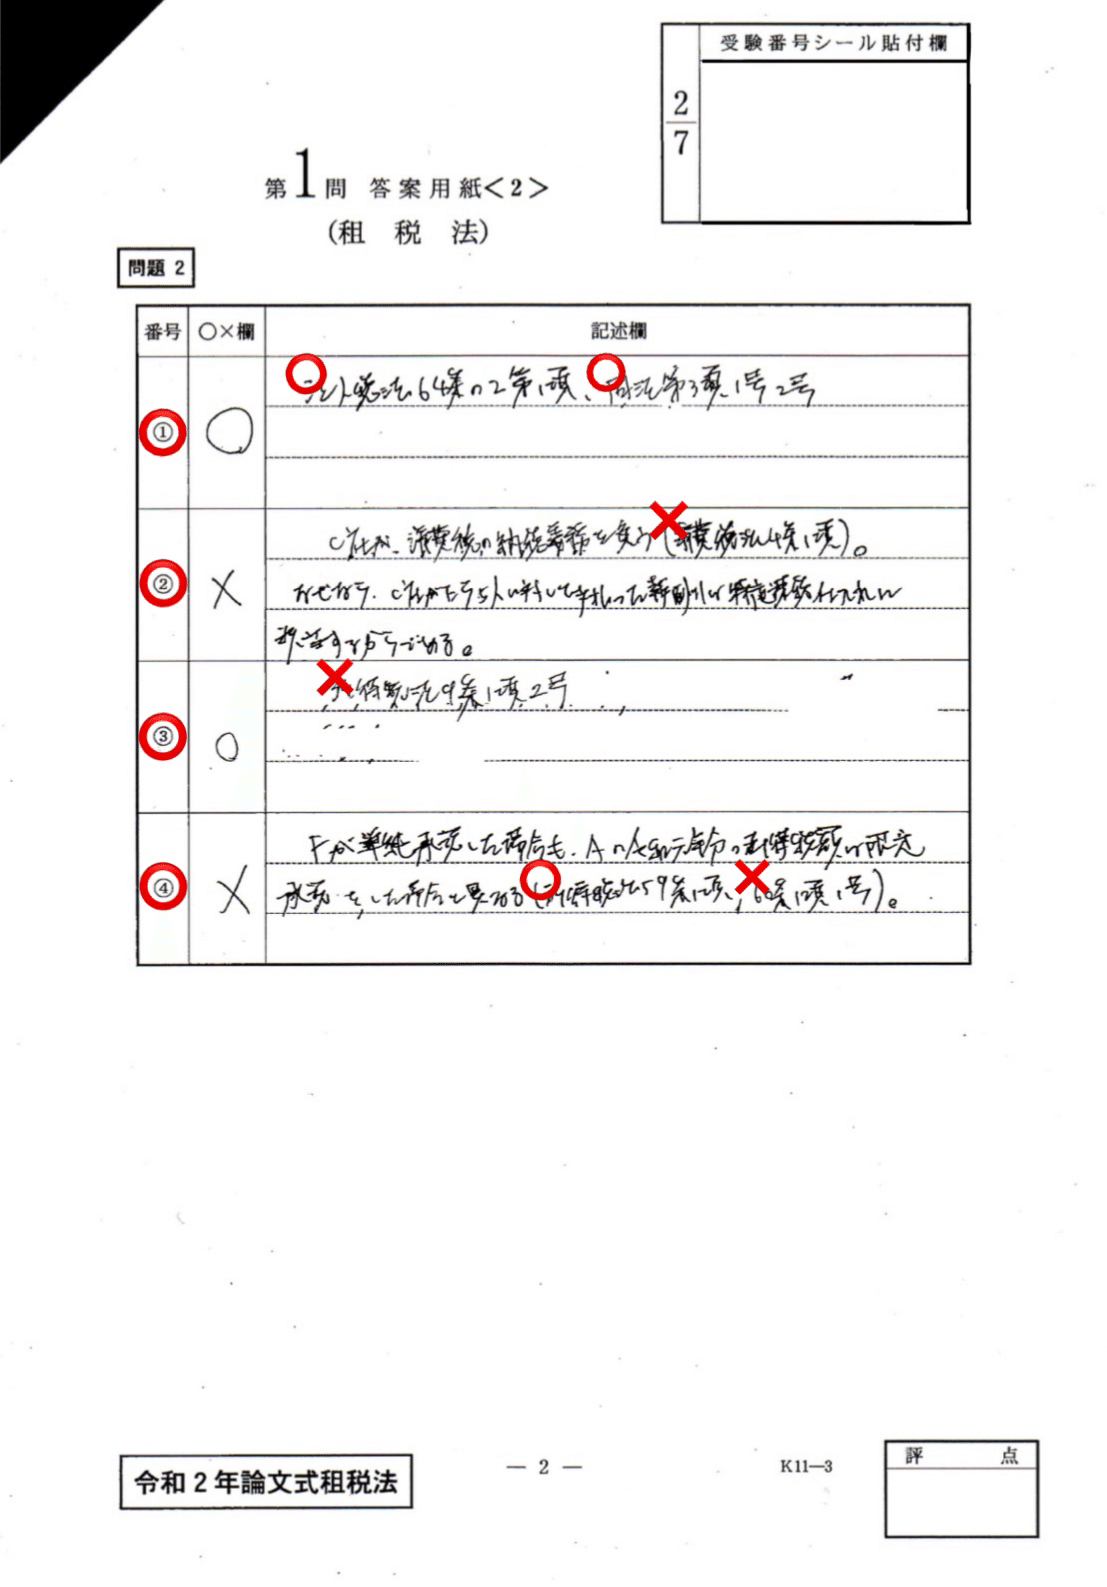 受験番号シール貼付欄
2/7
第1問 答案用紙<2>
(租税法)
問題 2
番号 ○×欄 記述欄
① ○ 法人税法64条の2第1項、同法第3項1号2号
② × C社が、消費税の納税義務を負う(消費税法4条1項)。
なぜなら、C社がEら5人に対して支払った報酬は特定課税仕入れに
該当するからである。
③ ○ 所得税法9条1項2号
④ × Fが単純承認した場合も、AのA
の所得税額は限定
承認をした場合と異なる(所得税法59条1項、60条1項1号)。
令和2年論文式租税法
― 2 ―
K11―3
評点